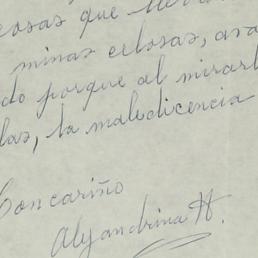 cosas que
minas celosas, ava
do porque al mirarl
las, la maledicencia
Con cariño
Alejandrina H.